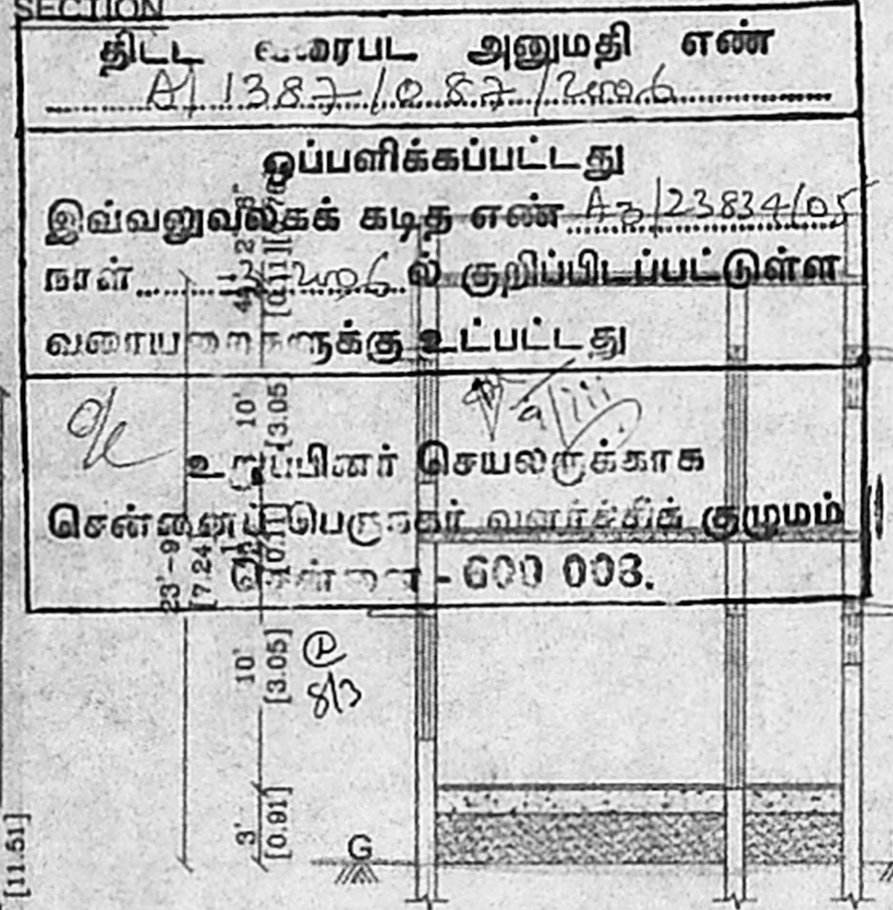 SECTION
திட்ட வரைபட அனுமதி எண்
A/1387/087/2006
ஒப்பளிக்கப்பட்டது
இவ்வலுவலகக் கடித எண் A3/23834/05
நாள் 3/2006 ல் குறிப்பிடப்பட்டுள்ள
வரையறைகளுக்கு உட்பட்டது
உறுப்பினர் செயலருக்காக
சென்னைப் பெருநகர் வளர்ச்சிக் குழுமம்
சென்னை - 600 008.
10'
[3.05]
23'-9
[7.24
10'
[3.05]
P
8/3
3'
[0.91]
G
[11.51]